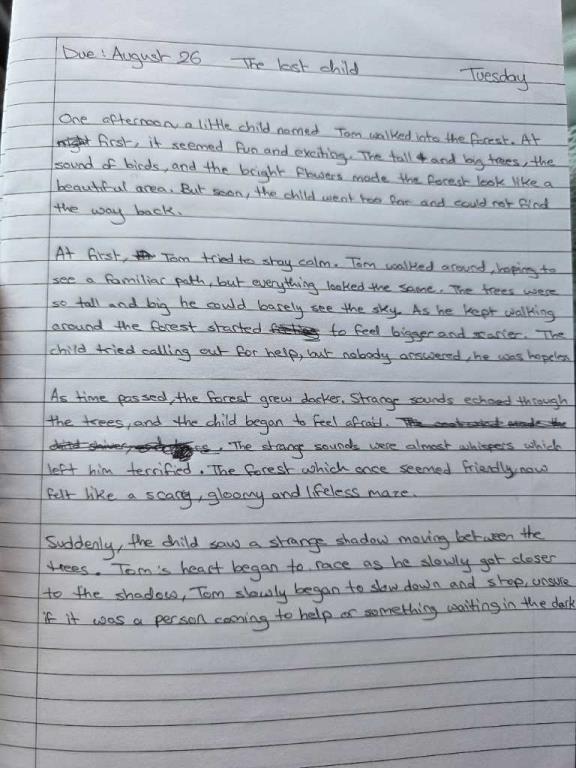 Due: August 26 The lost child Tuesday
One afternoon, a little child named Tom walked into the forest. At
first, it seemed fun and exciting. The tall and big trees, the
sound of birds, and the bright flowers made the forest look like a
beautiful area. But soon, the child went too far and could not find
the way back.
At first, Tom tried to stay calm. Tom walked around, hoping to
see a familiar path, but everything looked the same. The trees were
so tall and big he could barely see the sky. As he kept walking
around the forest started to feel bigger and scarier. The
child tried calling out for help, but nobody answered, he was hopeless
As time passed, the forest grew darker. Strange sounds echoed through
the trees, and the child began to feel afraid.
. The strange sounds were almost whispers which
left him terrified. The forest which once seemed friendly, now
felt like a scary, gloomy and lifeless maze.
Suddenly, the child saw a strange shadow moving between the
trees. Tom's heart began to race as he slowly got closer
to the shadow, Tom slowly began to slow down and stop, unsure
if it was a person coming to help or something waiting in the dark